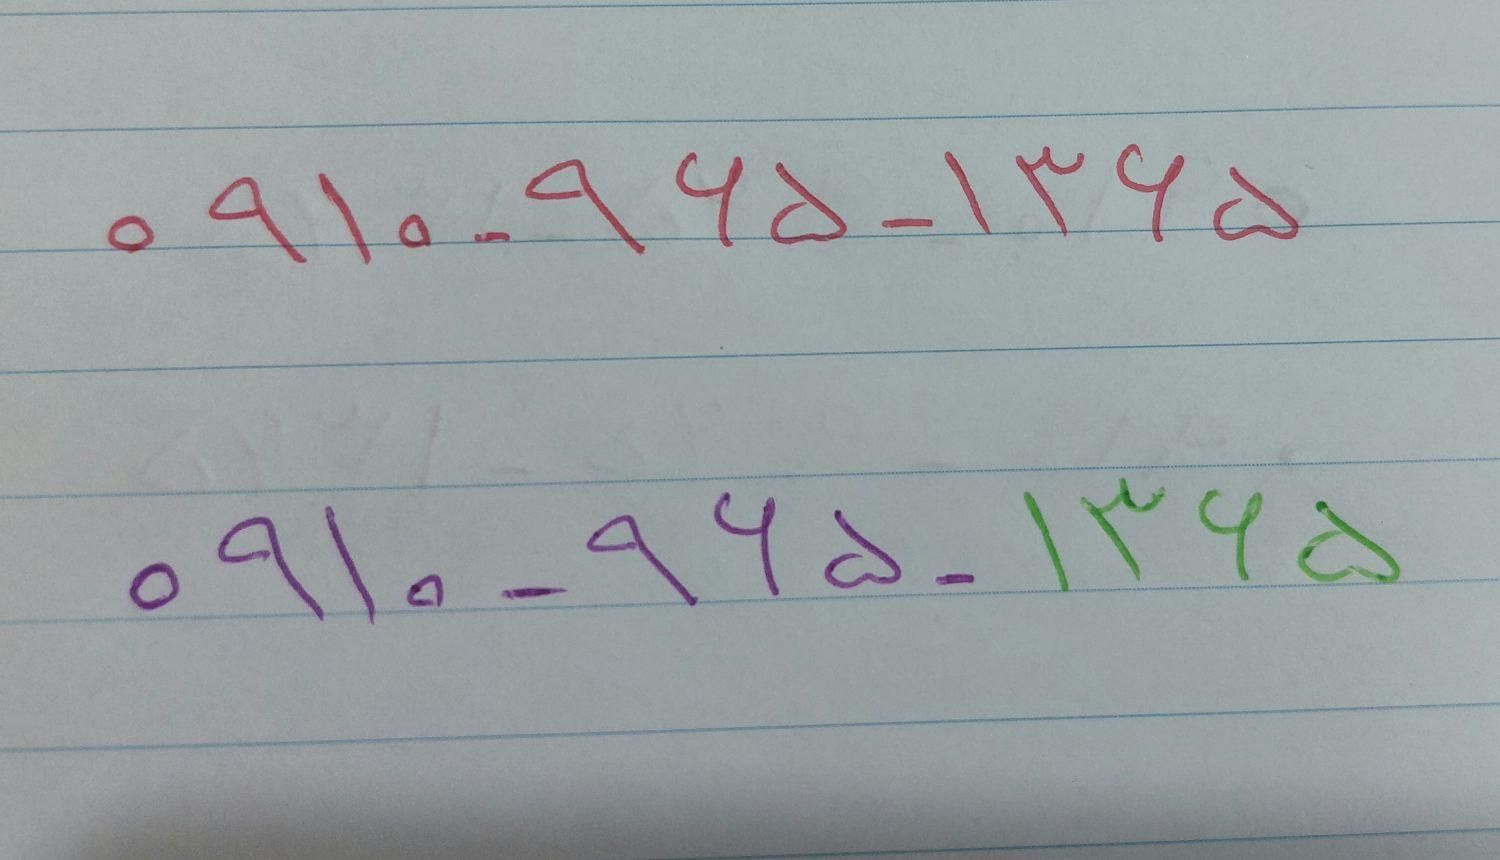 ۰۹۱۰-۹۶۵-۱۳۶۵
۰۹۱۰-۹۶۵-۱۳۶۵